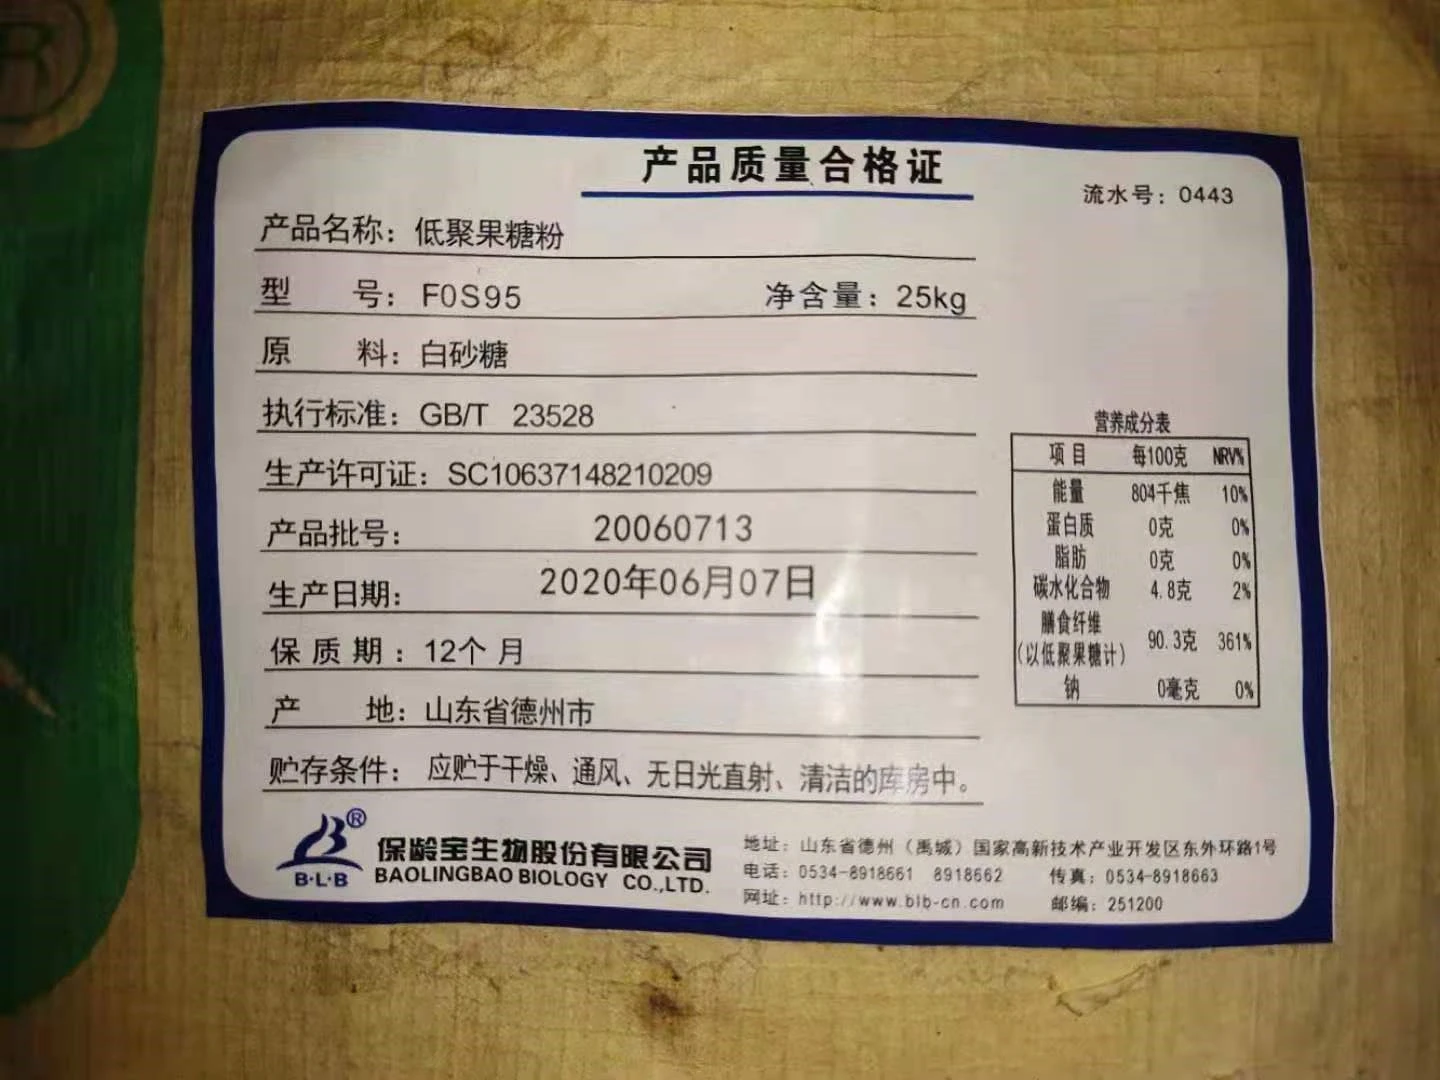 R
产品质量合格证
流水号：0443
产品名称：低聚果糖粉
型 号：F0S95 净含量：25kg
原 料：白砂糖
执行标准：GB/T 23528
生产许可证：SC10637148210209
产品批号： 20060713
生产日期： 2020年06月07日
保 质 期 ：12个 月
产 地：山东省德州市
贮存条件：应贮于干燥、通风、无日光直射、清洁的库房中。
营养成分表
项目 每100克 NRV%
能量 804千焦 10%
蛋白质 0克 0%
脂肪 0克 0%
碳水化合物 4.8克 2%
膳食纤维
（以低聚果糖计） 90.3克 361%
钠 0毫克 0%
B·L·B ®
保龄宝生物股份有限公司
BAOLINGBAO BIOLOGY CO.,LTD.
地址：山东省德州（禹城）国家高新技术产业开发区东外环路1号
电话：0534-8918661 8918662 传真：0534-8918663
网址：http://www.blb-cn.com 邮编：251200